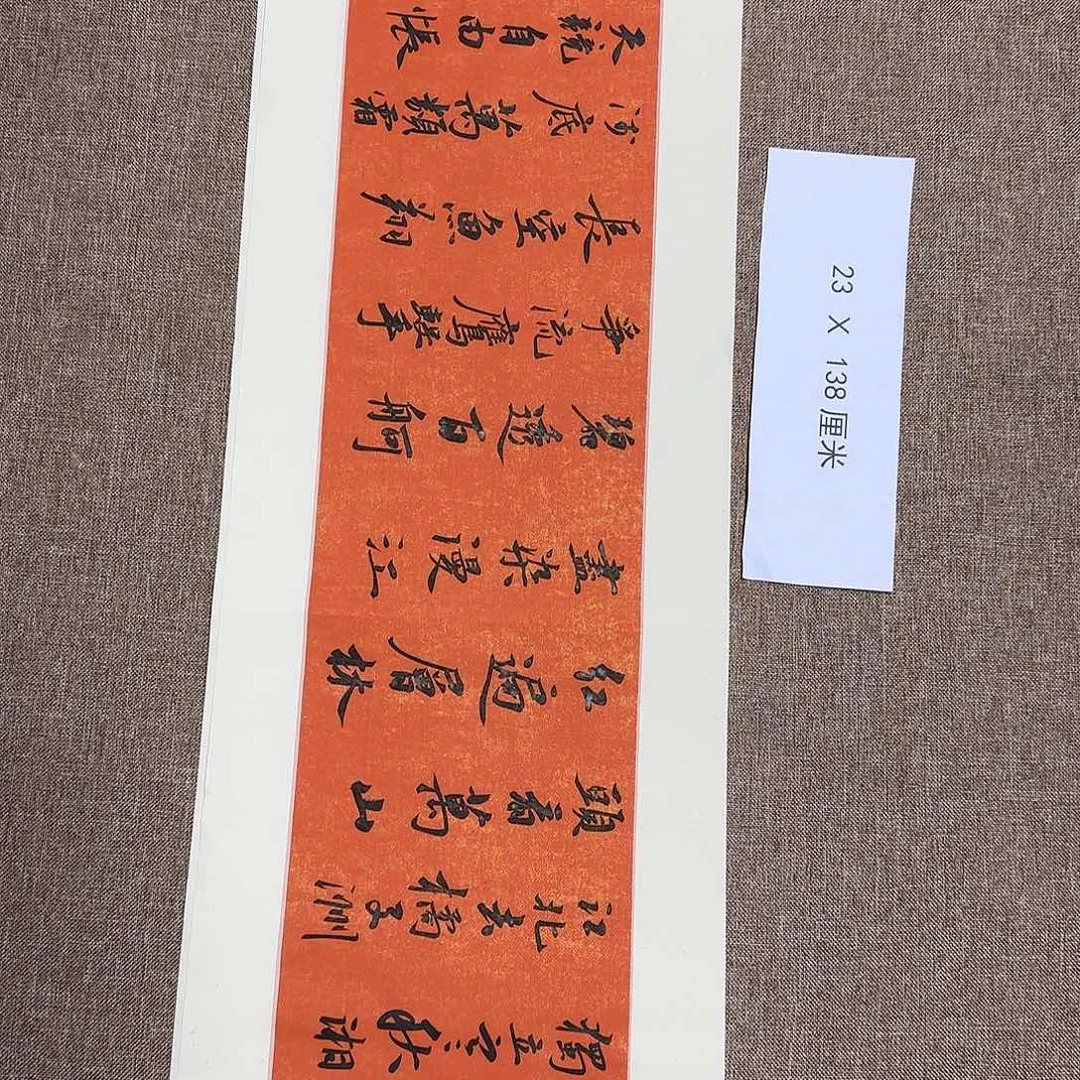 獨立寒秋湘
江北去橘子洲
頭看萬山
红遍層林
盡染漫江
碧透百舸
爭流鷹擊
長空魚翔
浅底萬類霜
天競自由悵
23 X 138厘米